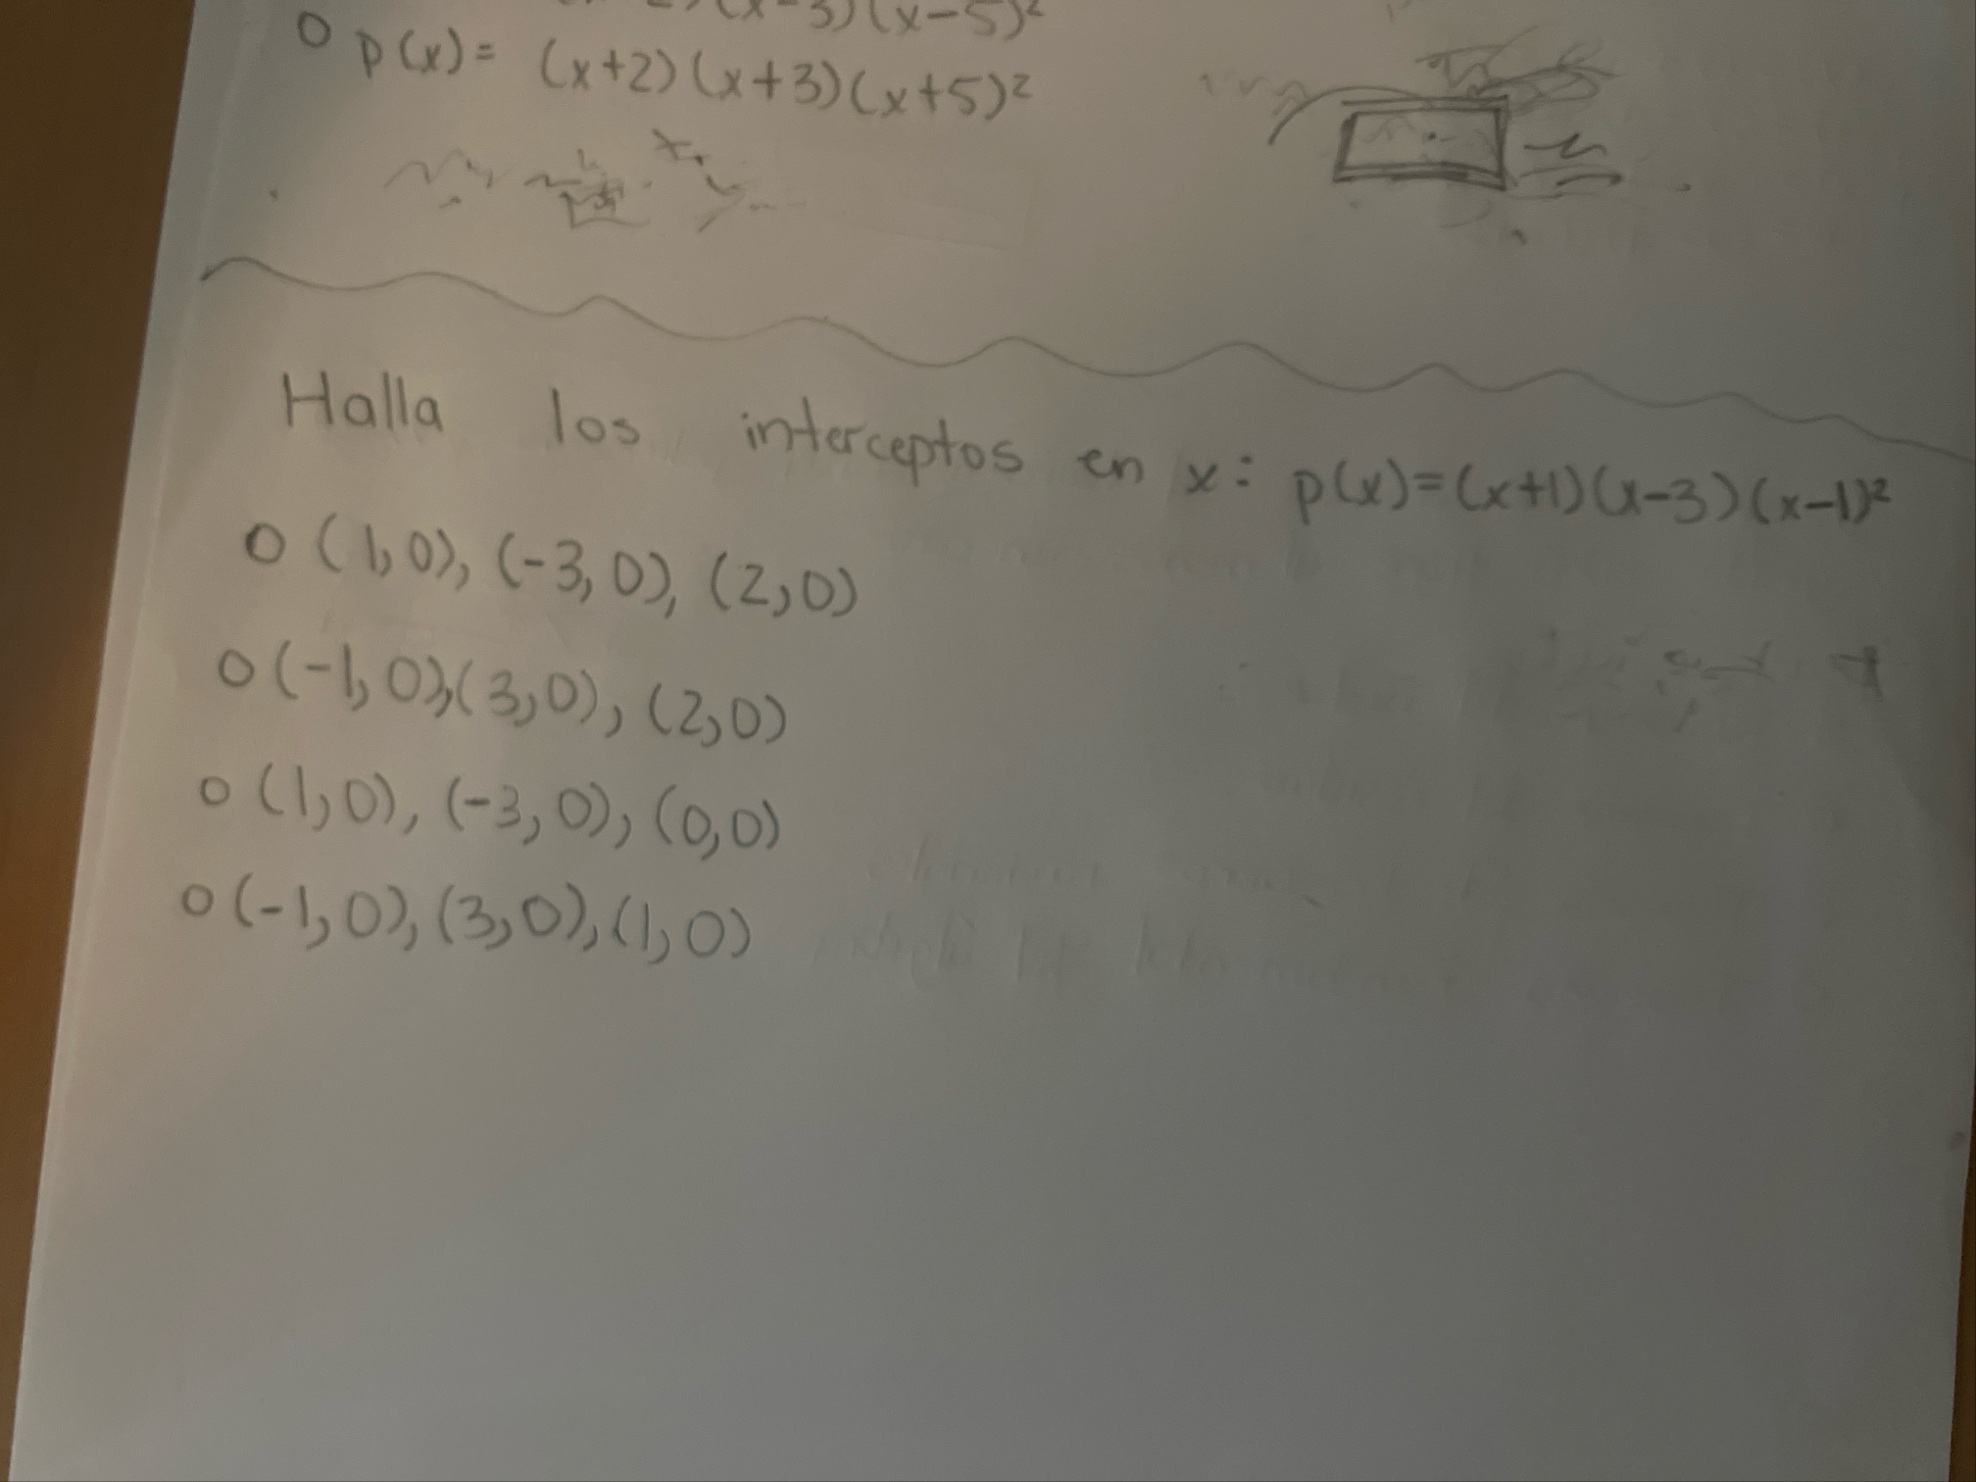 (x-3)(x-5)²
○ p(x)= (x+2)(x+3)(x+5)²
Halla los interceptos en x: p(x)=(x+1)(x-3)(x-1)²
○ (1,0), (-3,0), (2,0)
○ (-1,0),(3,0), (2,0)
○ (1,0), (-3,0), (0,0)
○ (-1,0), (3,0), (1,0)